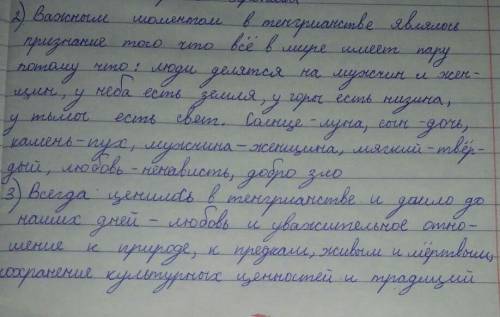 2) Важным моментом в тенгрианстве являлось
признание того что всё в мире имеет пару
потому что: люди делятся на мужчин и жен-
щин, у неба есть земля, у горы есть низина,
у тьмы есть свет. Солнце-луна, сын-дочь,
камень-пух, мужчина-женщина, мягкий-твёр-
дый, любовь-ненависть, добро зло
3) Всегда ценилось в тенгрианстве и дошло до
наших дней - любовь и уважительное отно-
шение к природе, к предкам, живым и мёртвым,
сохранение культурных ценностей и традиций